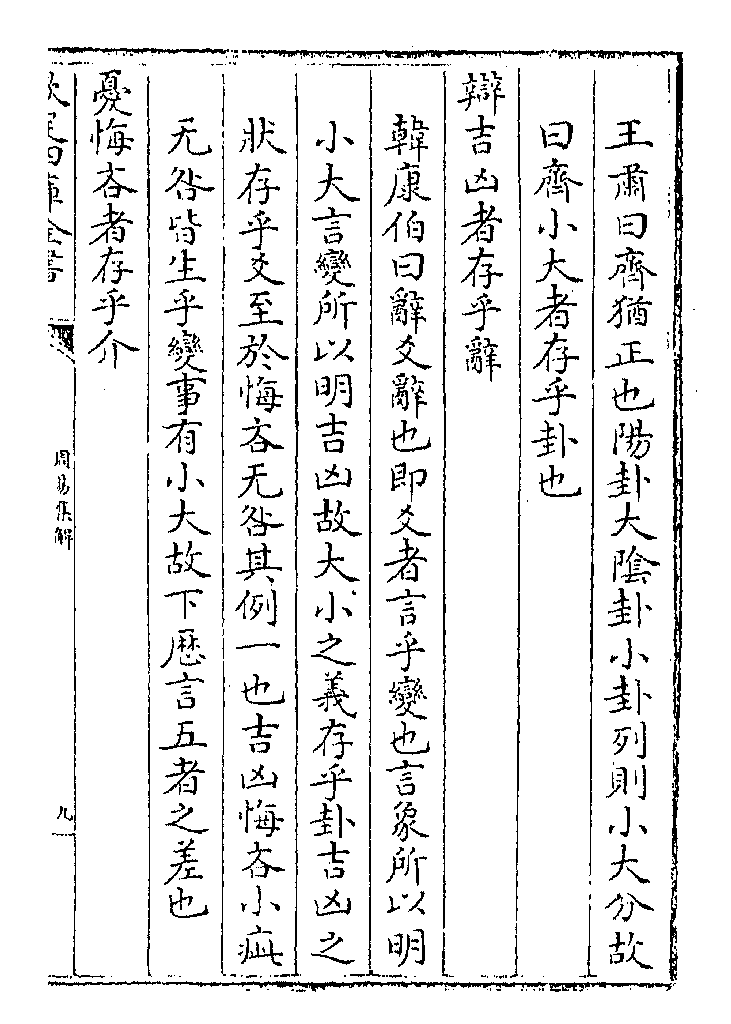 王肅曰齊猶正也陽卦大隂卦小卦列則小大分故
曰齊小大者存乎卦也
辯吉凶者存乎辭
韓康伯曰辭爻辭也即爻者言乎變也言象所以明
小大言變所以明吉凶故大小之義存乎卦吉凶之
狀存乎爻至於悔吝无咎其例一也吉凶悔吝小疵
无咎皆生乎變事有小大故下歴言五者之差也
憂悔吝者存乎介
欽定四庫全書
周易集解
九